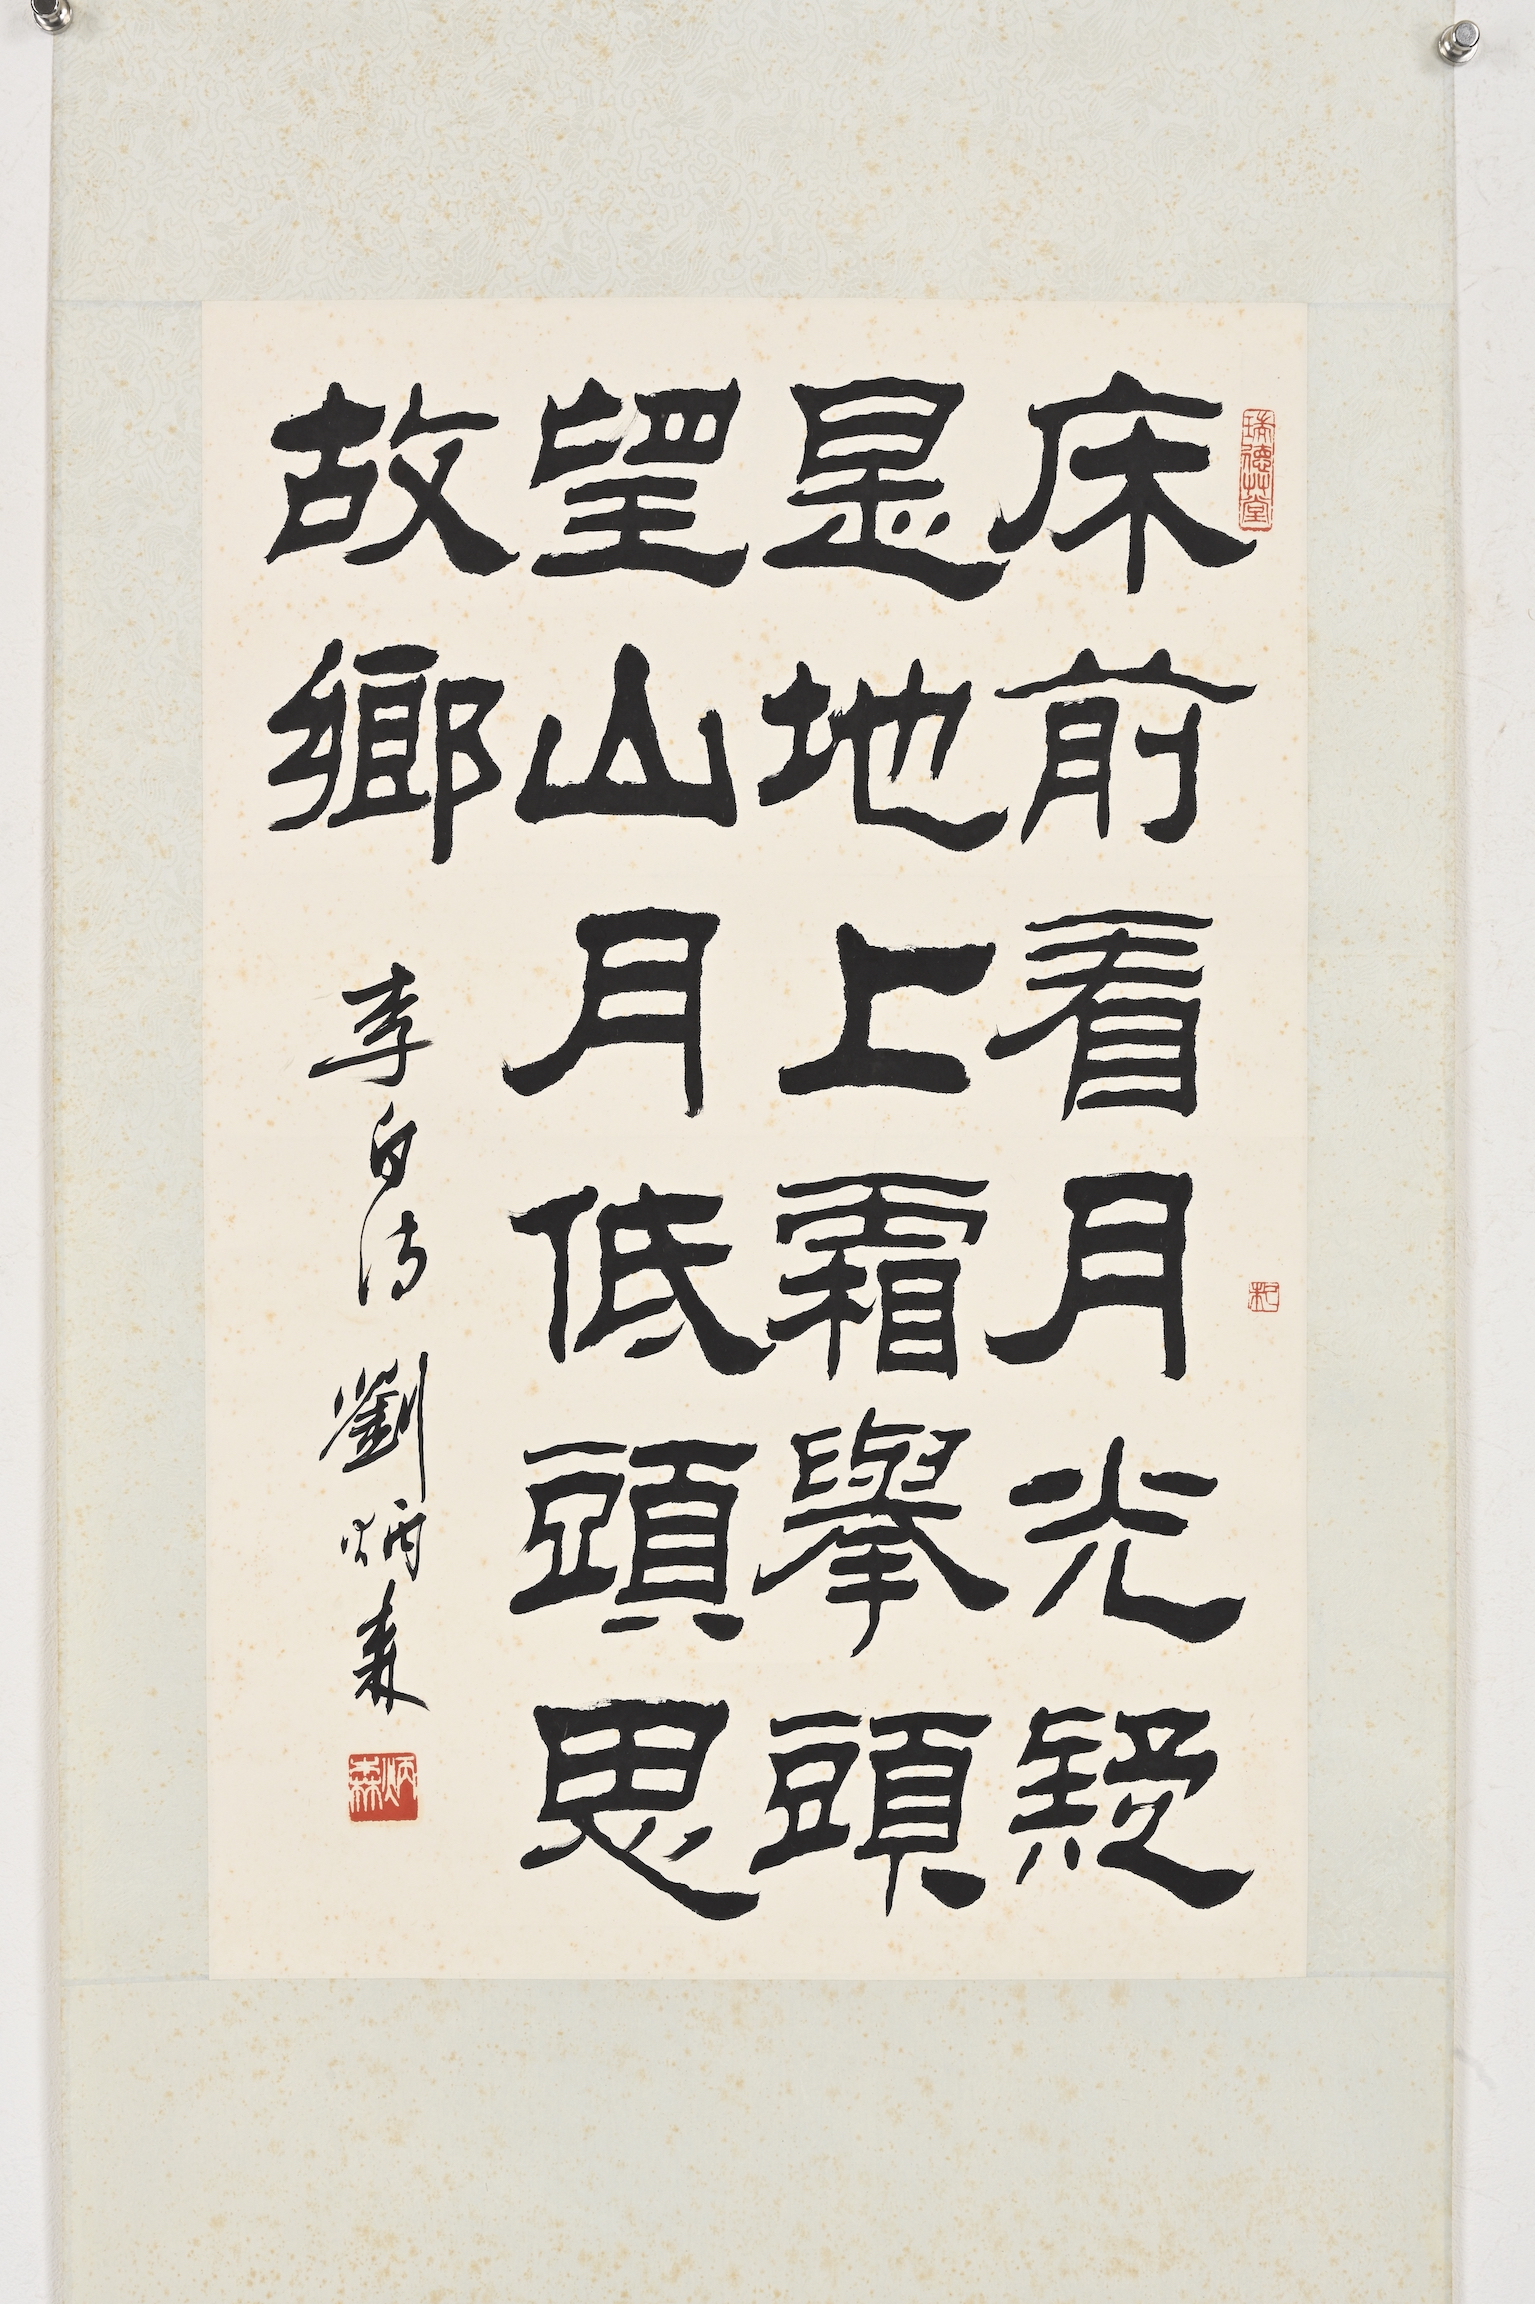 瑞德草堂
床前看月光疑
是地上霜舉頭
望山月低頭思
故鄉
李白詩 劉炳森
炳森